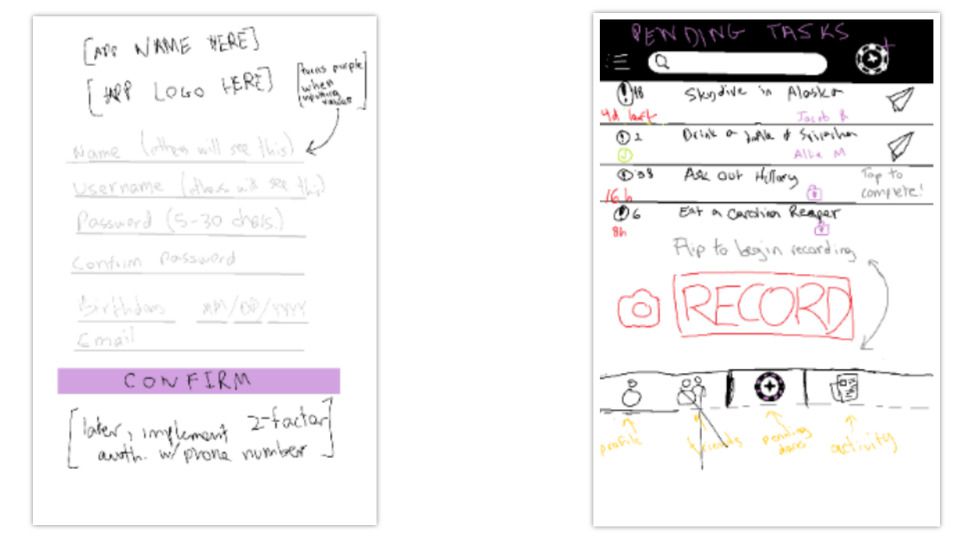 [APP NAME HERE]
[APP LOGO HERE]
[turns purple
when
inputting
values]
Name (others will see this)
Username (others will see this)
Password (5-30 chars.)
Confirm Password
Birthday MM/DD/YYYY
Email
CONFIRM
[later, implement 2-factor
auth. w/ phone number]
PENDING TASKS
18 Skydive in Alaska
4d left Jacob B
2 Drink a of Sriracha
Allie M
38 Ask Out Hillary Tap to
16h complete!
6 Eat a Carolina Reaper
8h
Flip to begin recording
RECORD
profile friends pending activity